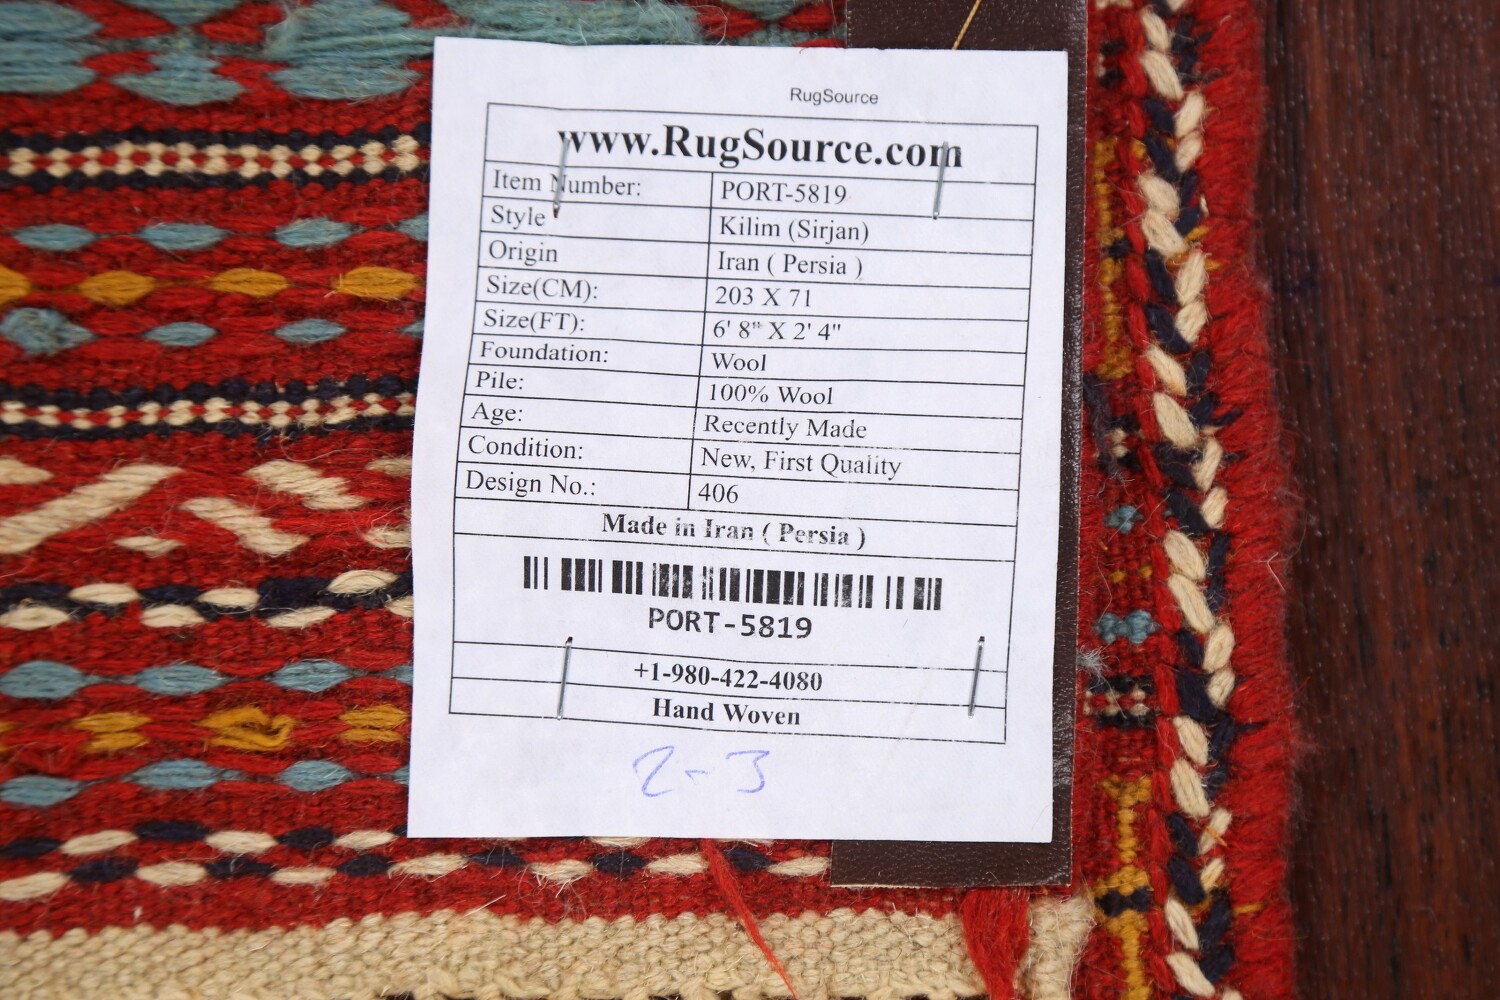 RugSource
www.RugSource.com
Item Number: PORT-5819
Style Kilim (Sirjan)
Origin Iran ( Persia )
Size(CM): 203 X 71
Size(FT): 6' 8" X 2' 4"
Foundation: Wool
Pile: 100% Wool
Age: Recently Made
Condition: New, First Quality
Design No.: 406
Made in Iran ( Persia )
PORT-5819
+1-980-422-4080
Hand Woven
2-3